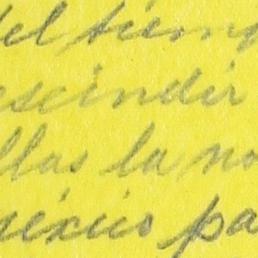 del tiemp
escindir
llas la no
México pa